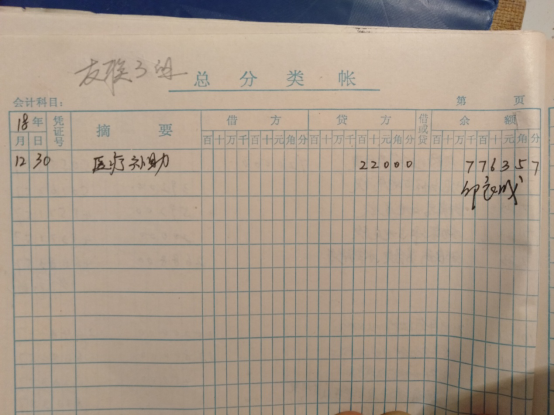 总分类帐
会计科目： 第 页
18年 凭证号 摘要 借方 贷方 借或贷 余额
月 日 百十万千百十元角分 百十万千百十元角分 百十万千百十元角分
12 30 医疗补助 22000 776357